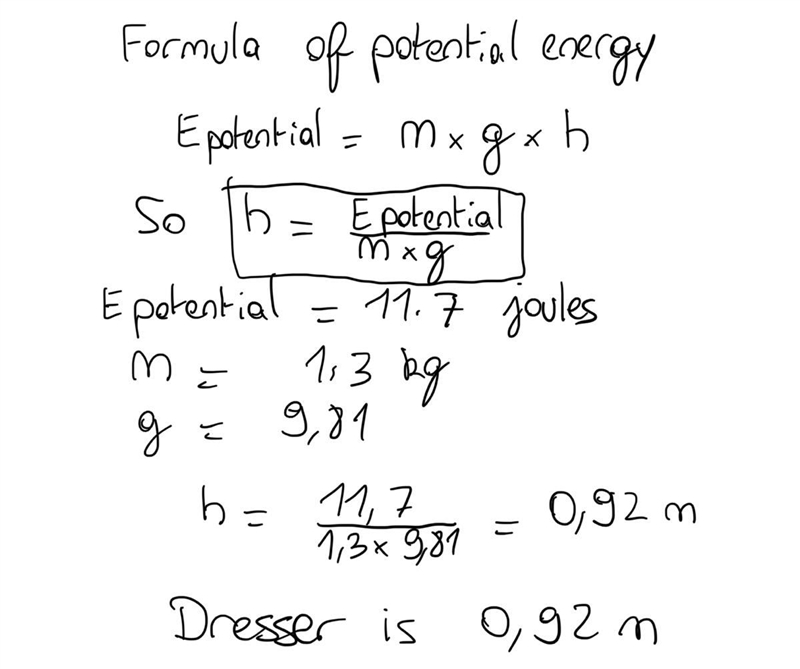 Formula of potential energy
E potential = m x g x h
So h = E potential / m x g
E potential = 11.7 joules
m = 1,3 kg
g = 9,81
h = 11,7 / 1,3 x 9,81 = 0,92 m
Dresser is 0,92 m